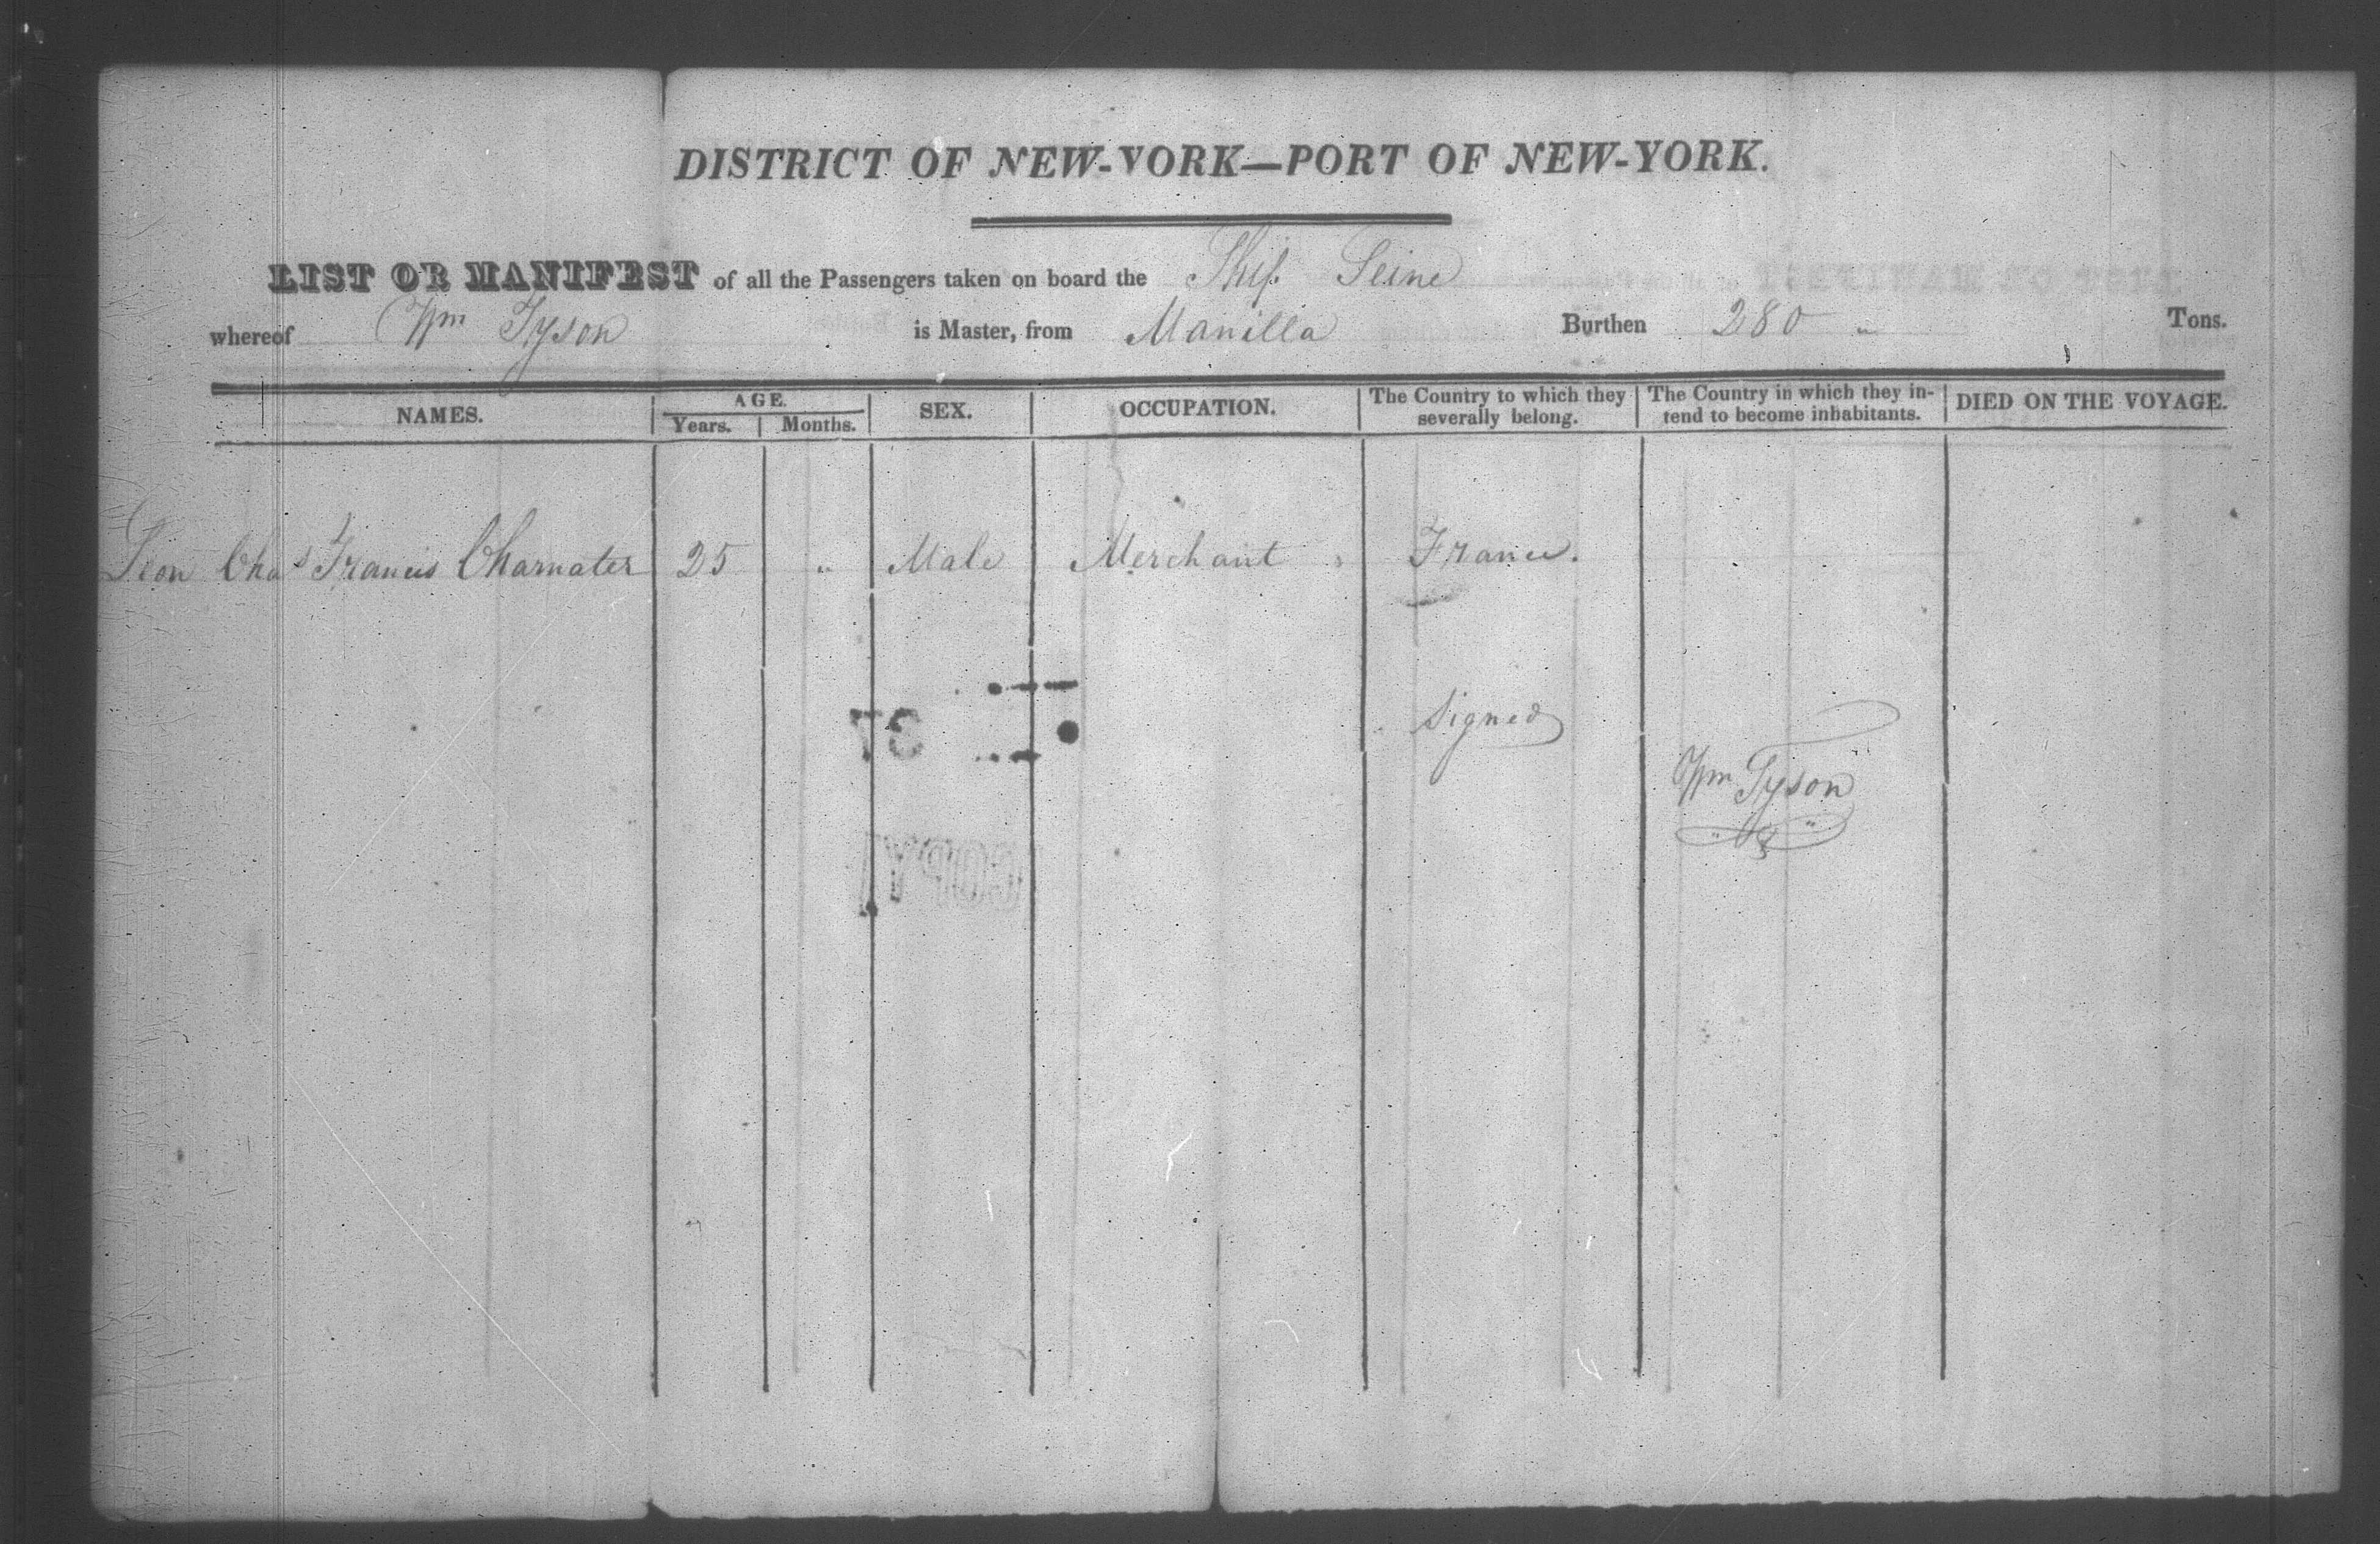 DISTRICT OF NEW-YORK—PORT OF NEW-YORK.
LIST OR MANIFEST of all the Passengers taken on board the Ship Seine
whereof Wm Tyson is Master, from Manilla Burthen 280 " Tons.
NAMES. AGE. Years. Months. SEX. OCCUPATION. The Country to which they severally belong. The Country in which they intend to become inhabitants. DIED ON THE VOYAGE.
Leon Chas Francis Charnater 25 " Male Merchant France.
Signed
Wm Tyson
37
COPY